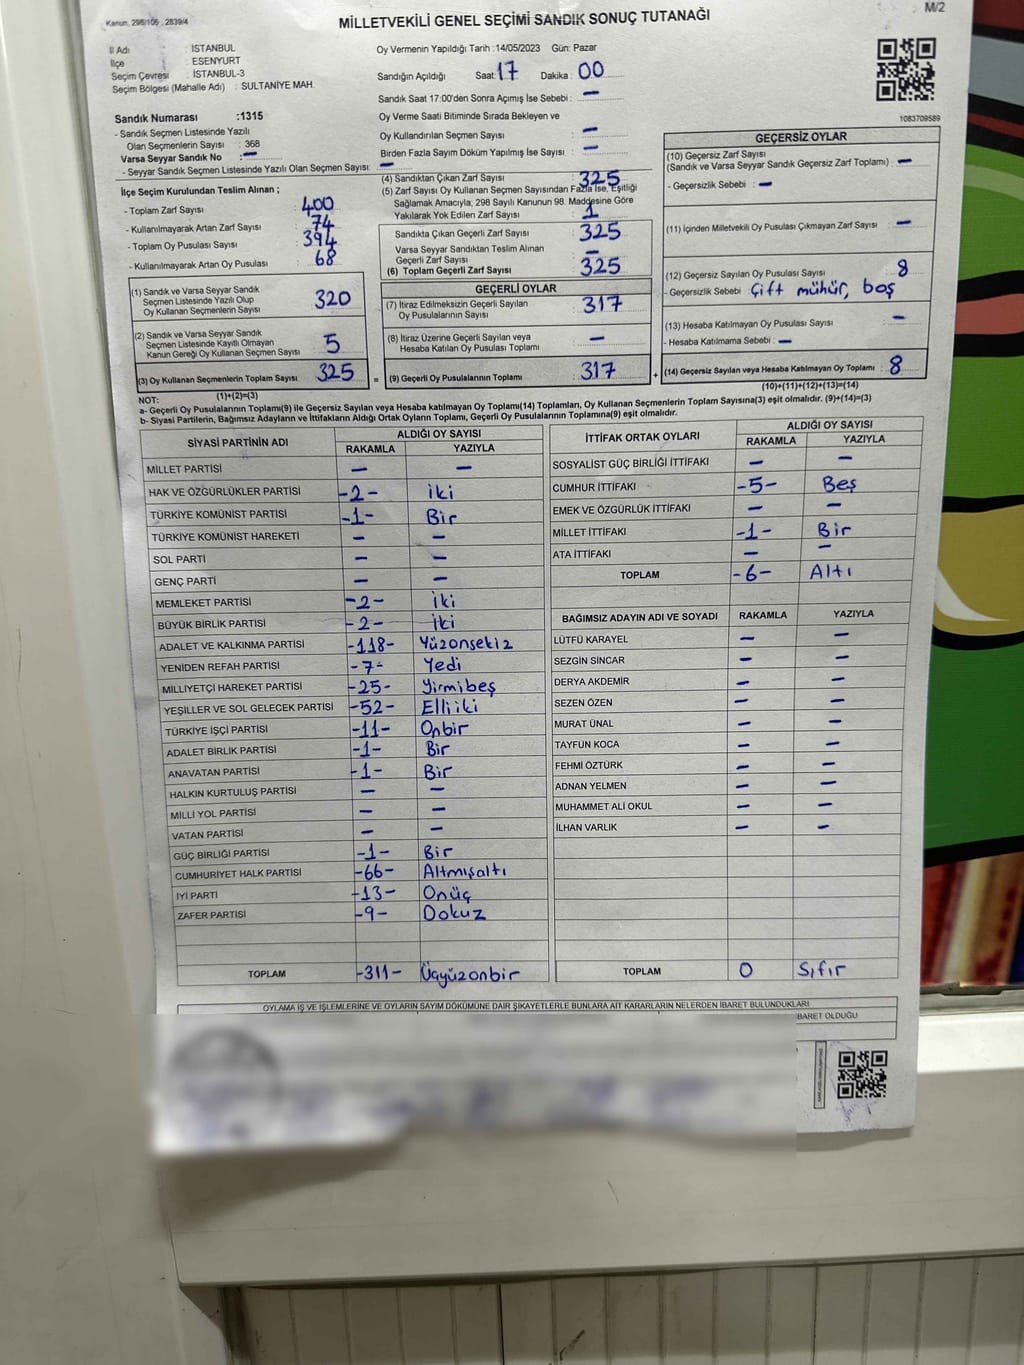 Kanun, 298/105 , 2839/4
M/2
MİLLETVEKİLİ GENEL SEÇİMİ SANDIK SONUÇ TUTANAĞI
İl Adı : İSTANBUL
İlçe : ESENYURT
Seçim Çevresi : İSTANBUL-3
Seçim Bölgesi (Mahalle Adı) : SULTANİYE MAH.
Oy Vermenin Yapıldığı Tarih :14/05/2023 Gün: Pazar
Sandığın Açıldığı Saat: 17 Dakika : 00
Sandık Saat 17:00'den Sonra Açımış İse Sebebi : –
Oy Verme Saati Bitiminde Sırada Bekleyen ve
Oy Kullandırılan Seçmen Sayısı : –
Birden Fazla Sayım Döküm Yapılmış İse Sayısı : –
1083709589
Sandık Numarası :1315
- Sandık Seçmen Listesinde Yazılı
Olan Seçmenlerin Sayısı : 368
Varsa Seyyar Sandık No : –
- Seyyar Sandık Seçmen Listesinde Yazılı Olan Seçmen Sayısı: –
İlçe Seçim Kurulundan Teslim Alınan ;
- Toplam Zarf Sayısı 400
- Kullanılmayarak Artan Zarf Sayısı : 74
- Toplam Oy Pusulası Sayısı : 394
- Kullanılmayarak Artan Oy Pusulası : 68
(1) Sandık ve Varsa Seyyar Sandık
Seçmen Listesinde Yazılı Olup
Oy Kullanan Seçmenlerin Sayısı 320
(2) Sandık ve Varsa Seyyar Sandık
Seçmen Listesinde Kayıtlı Olmayan
Kanun Gereği Oy Kullanan Seçmen Sayısı 5
(3) Oy Kullanan Seçmenlerin Toplam Sayısı 325
(1)+(2)=(3)
(4) Sandıktan Çıkan Zarf Sayısı : 325
(5) Zarf Sayısı Oy Kullanan Seçmen Sayısından Fazla İse, Eşitliği
Sağlamak Amacıyla, 298 Sayılı Kanunun 98. Maddesine Göre
Yakılarak Yok Edilen Zarf Sayısı : 1
Sandıkta Çıkan Geçerli Zarf Sayısı : 325
Varsa Seyyar Sandıktan Teslim Alınan
Geçerli Zarf Sayısı : –
(6) Toplam Geçerli Zarf Sayısı : 325
GEÇERLİ OYLAR
(7) İtiraz Edilmeksizin Geçerli Sayılan
Oy Pusulalarının Sayısı : 317
(8) İtiraz Üzerine Geçerli Sayılan veya
Hesaba Katılan Oy Pusulası Toplamı : –
= (9) Geçerli Oy Pusulalarının Toplamı : 317
GEÇERSİZ OYLAR
(10) Geçersiz Zarf Sayısı
(Sandık ve Varsa Seyyar Sandık Geçersiz Zarf Toplamı) : –
- Geçersizlik Sebebi : –
(11) İçinden Milletvekili Oy Pusulası Çıkmayan Zarf Sayısı : –
(12) Geçersiz Sayılan Oy Pusulası Sayısı : 8
- Geçersizlik Sebebi : Çift mühür, boş
(13) Hesaba Katılmayan Oy Pusulası Sayısı : –
- Hesaba Katılmama Sebebi : –
+ (14) Geçersiz Sayılan veya Hesaba Katılmayan Oy Toplamı : 8
(10)+(11)+(12)+(13)=(14)
NOT:
a- Geçerli Oy Pusulalarının Toplamı(9) ile Geçersiz Sayılan veya Hesaba katılmayan Oy Toplamı(14) Toplamları, Oy Kullanan Seçmenlerin Toplam Sayısına(3) eşit olmalıdır. (9)+(14)=(3)
b- Siyasi Partilerin, Bağımsız Adayların ve İttifakların Aldığı Ortak Oyların Toplamı, Geçerli Oy Pusulalarının Toplamına(9) eşit olmalıdır.
SİYASİ PARTİNİN ADI ALDIĞI OY SAYISI
RAKAMLA YAZIYLA
MİLLET PARTİSİ – –
HAK VE ÖZGÜRLÜKLER PARTİSİ -2- iki
TÜRKİYE KOMÜNİST PARTİSİ -1- Bir
TÜRKİYE KOMÜNİST HAREKETİ – –
SOL PARTİ – –
GENÇ PARTİ – –
MEMLEKET PARTİSİ -2- iki
BÜYÜK BİRLİK PARTİSİ -2- iki
ADALET VE KALKINMA PARTİSİ -118- Yüzonsekiz
YENİDEN REFAH PARTİSİ -7- Yedi
MİLLİYETÇİ HAREKET PARTİSİ -25- Yirmibeş
YEŞİLLER VE SOL GELECEK PARTİSİ -52- Elliiki
TÜRKİYE İŞÇİ PARTİSİ -11- Onbir
ADALET BİRLİK PARTİSİ -1- Bir
ANAVATAN PARTİSİ -1- Bir
HALKIN KURTULUŞ PARTİSİ – –
MİLLİ YOL PARTİSİ – –
VATAN PARTİSİ – –
GÜÇ BİRLİĞİ PARTİSİ -1- Bir
CUMHURİYET HALK PARTİSİ -66- Altmışaltı
İYİ PARTİ -13- Onüç
ZAFER PARTİSİ -9- Dokuz
TOPLAM -311- Üçyüzonbir
İTTİFAK ORTAK OYLARI ALDIĞI OY SAYISI
RAKAMLA YAZIYLA
SOSYALİST GÜÇ BİRLİĞİ İTTİFAKI – –
CUMHUR İTTİFAKI -5- Beş
EMEK VE ÖZGÜRLÜK İTTİFAKI – –
MİLLET İTTİFAKI -1- Bir
ATA İTTİFAKI – –
TOPLAM -6- Altı
BAĞIMSIZ ADAYIN ADI VE SOYADI RAKAMLA YAZIYLA
LÜTFÜ KARAYEL – –
SEZGİN SİNCAR – –
DERYA AKDEMİR – –
SEZEN ÖZEN – –
MURAT ÜNAL – –
TAYFUN KOCA – –
FEHMİ ÖZTÜRK – –
ADNAN YELMEN – –
MUHAMMET ALİ OKUL – –
İLHAN VARLIK – –
TOPLAM 0 Sıfır
OYLAMA İŞ VE İŞLEMLERİNE VE OYLARIN SAYIM DÖKÜMÜNE DAİR ŞİKAYETLERLE BUNLARA AİT KARARLARIN NELERDEN İBARET BULUNDUKLARI
İBARET OLDUĞU